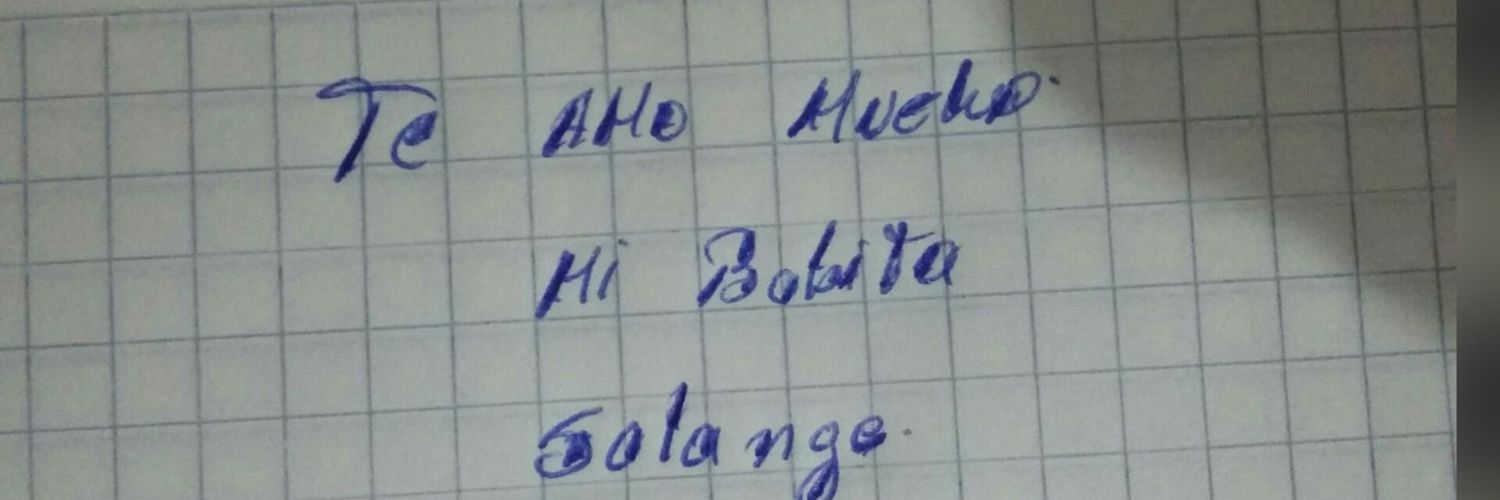 Te AMo Mucho.
Mi Bobita
Solange.